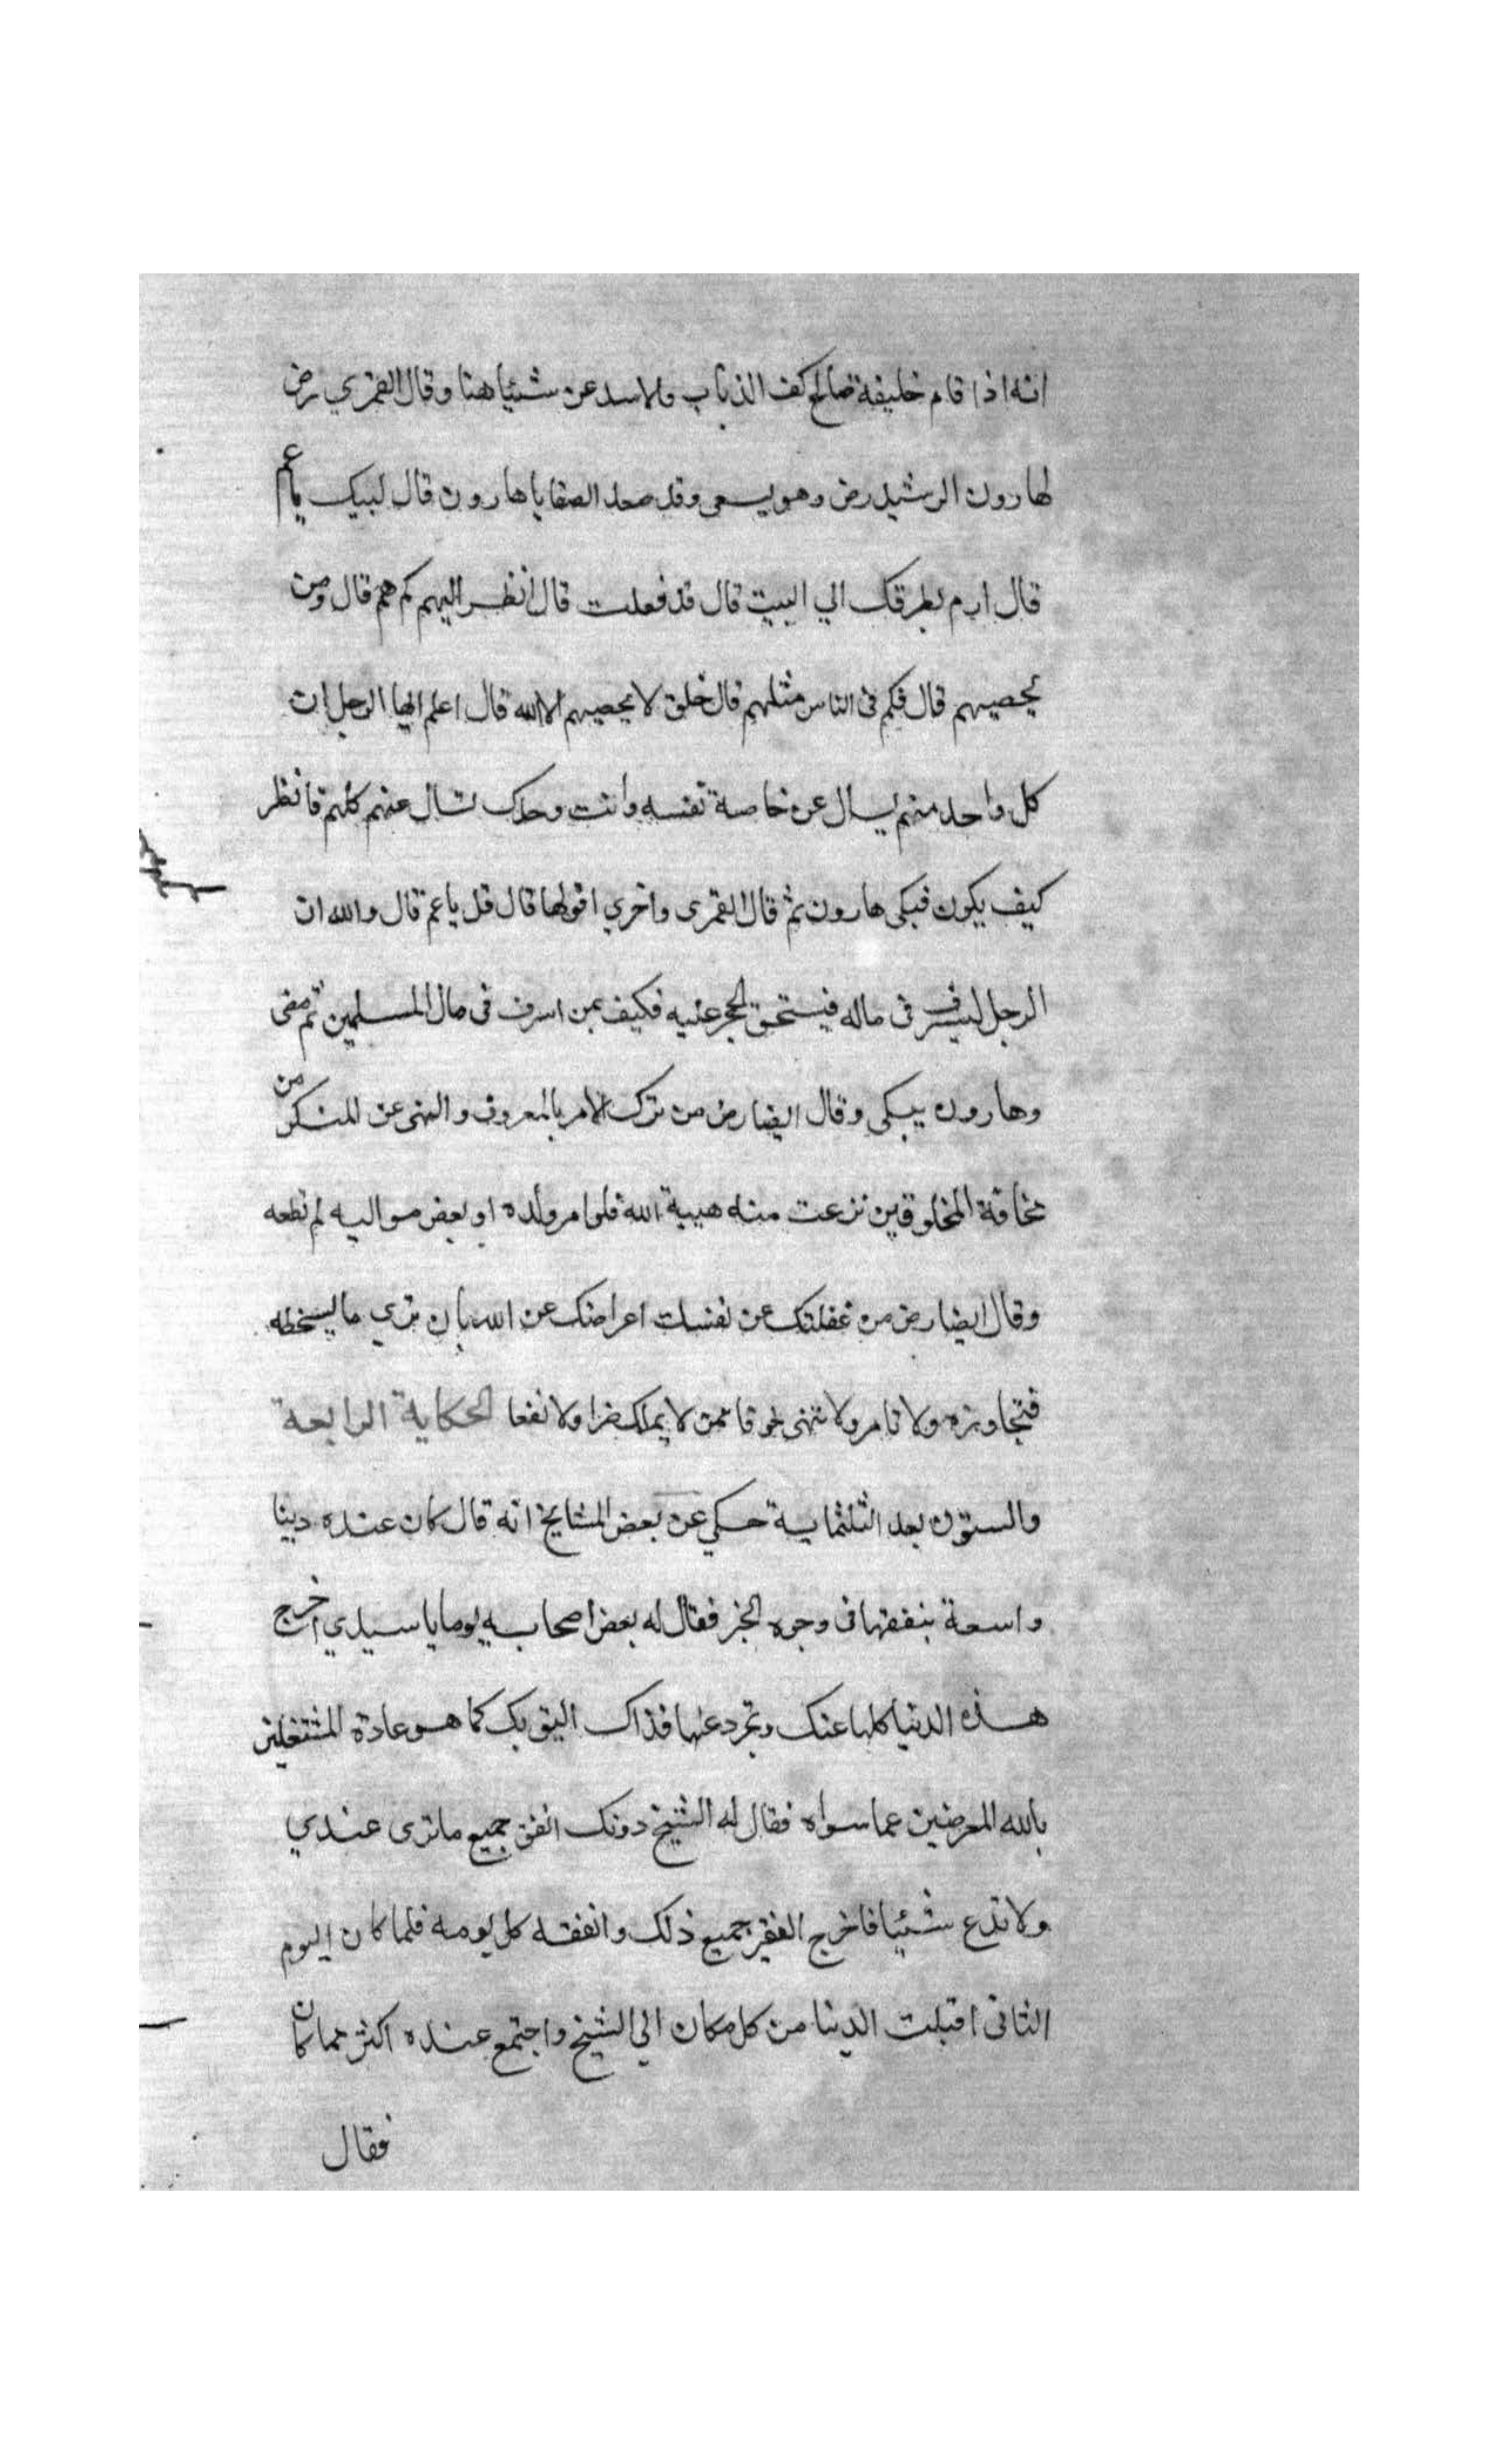 انه اذا قام خليفة صالح كف الذئاب والاسد عن شئياهنا وقال العمري رض
لهارون الرشيد رض وهو يسعى وقد صعد الصفا يا هارون قال لبيك يا عم
قال ارم بطرفك الي البيت قال قد فعلت قال انظر اليهم كم هم قال ومن
يحصيهم قال فكم فى الناس مثلهم قال خلق لا يحصيهم الا الله قال اعلم ايها الرجل ان
كل واحد منهم يسال عن خاصة نفسه وانت وحدك تسال عنهم كلهم فانظر
كيف يكون فبكى هارون ثم قال العمرى واخري اقولها قال قل يا عم قال والله ان
الرجل ليسرف فى ماله فيستحق الحجر عليه فكيف بمن اسرف فى مال المسلمين ثم مضى
وهارون يبكى وقال ايضا رض من ترك الامر بالمعروف والنهى عن المنكر من
مخافة المخلوقين نزعت منه هيبة الله فلو امر ولده او بعض مواليه لم تطعه
وقال ايضا رض من غفلتك عن نفسك اعراضك عن الله بان تري ما يسخطه
فتجاوزه ولا تامر ولا تنهى خوفا ممن لا يملك ضرا ولا نفعا الحكاية الرابعة
والستون بعد الثلثماية حكي عن بعض المشايخ انه قال كان عنده دينا
واسعة ينفقها فى وجوه الخير فقال له بعض اصحابه يوما يا سيدي اخرج
هذه الدنيا كلها عنك وتجرد عنها فذاك اليق بك كما هو عادة المشتغلين
بالله المعرضين عما سواه فقال له الشيخ دونك انفق جميع ما ترى عندي
ولا تدع شئيا فاخرج الفقير جميع ذلك وانفقه كل يومه فلما كان اليوم
الثانى اقبلت الدنيا من كل مكان الي الشيخ واجتمع عنده اكثر مما كان
فقال